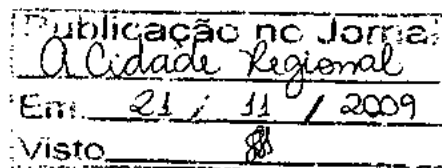 Publicação no Jornal
A Cidade Regional
Em 21 / 11 / 2009
Visto